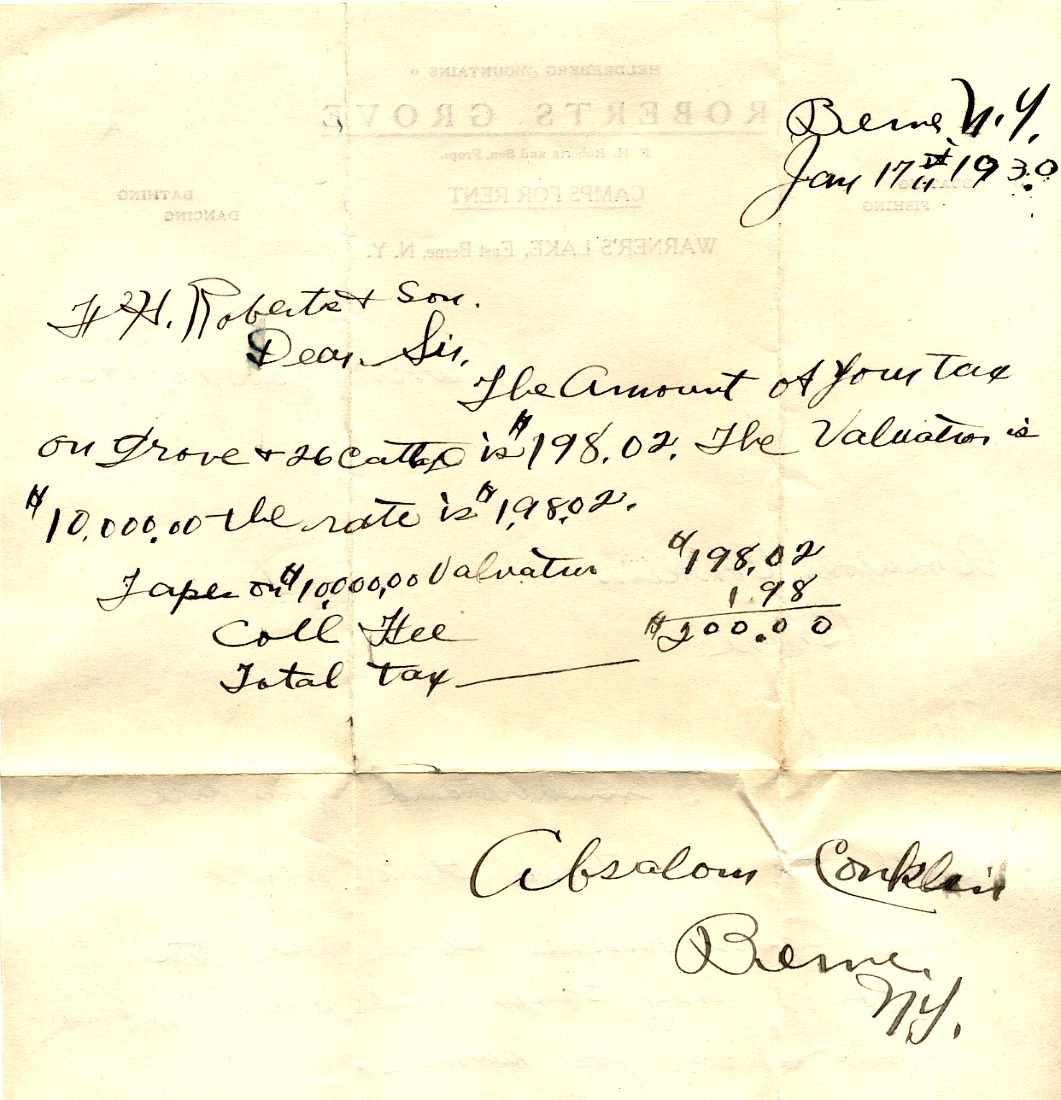 Berne N.Y.
Jan 17th 1930
F H. Roberts + Son.
Dear Sir,
The Amount of your tax
on Grove + 26 cottage is $198.02. The Valuation is
$10,000.00 the rate is $1,98.02.
Taxes on $10,000,00 Valuation $198.02
Coll Fee 1.98
Total tax $200.00
Absalom Conklin
Berne
N.Y.
HELDERBERG MOUNTAINS
ROBERTS GROVE
F. H. Roberts and Son, Props.
BATHING
DANCING
CAMPS FOR RENT
BOATING
FISHING
WARNER'S LAKE, East Berne, N. Y.